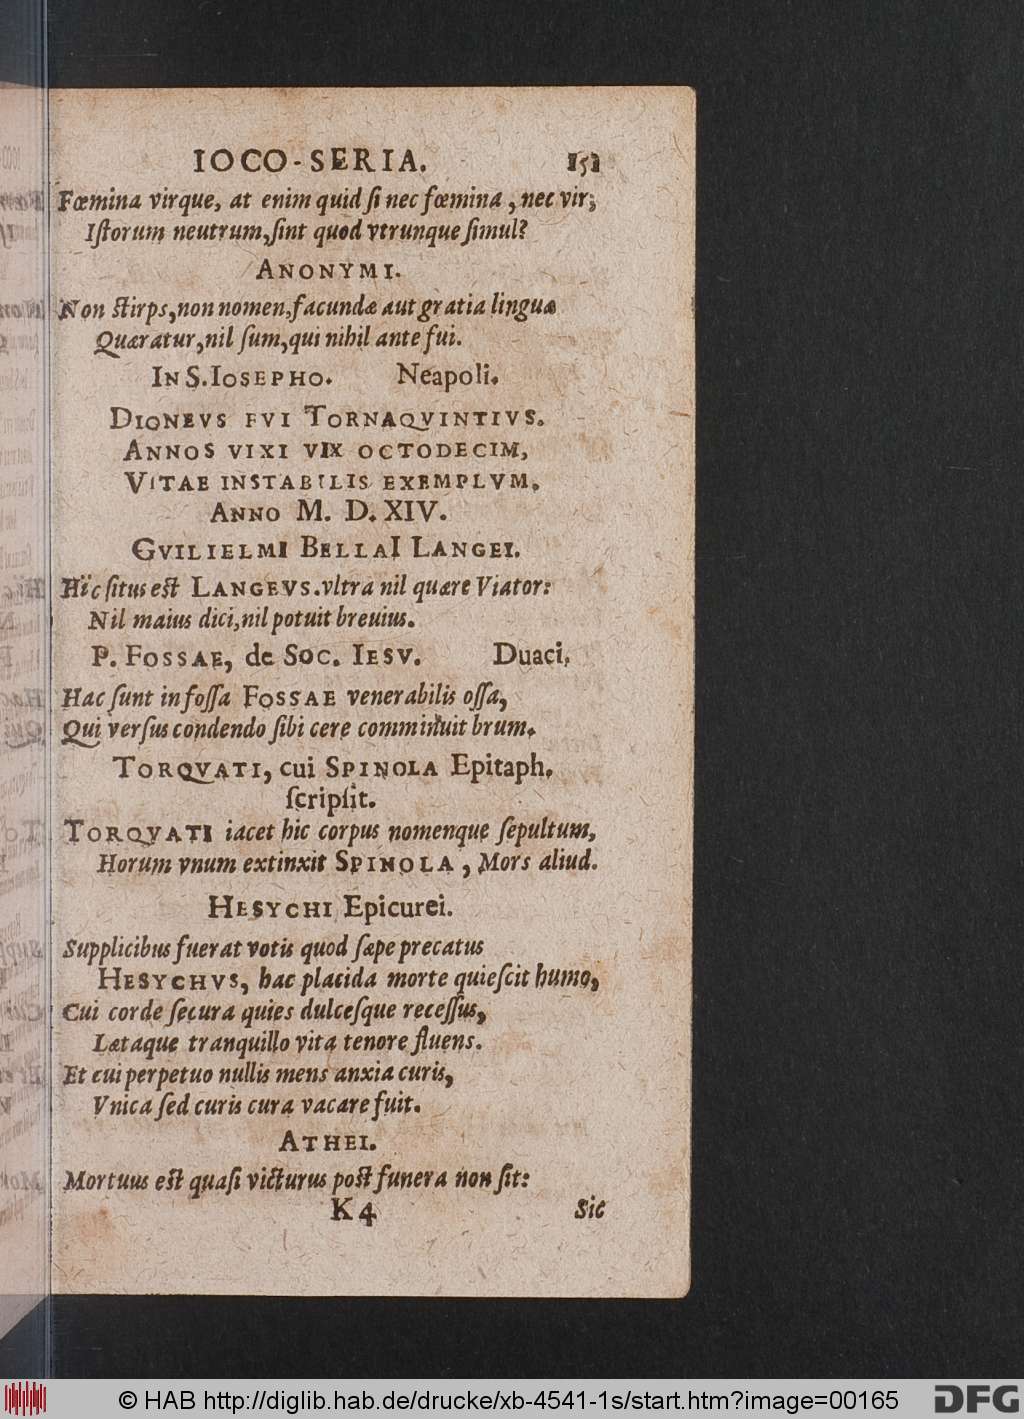 IOCO-SERIA. 151
Fœmina virque, at enim quid ſi nec fœmina, nec vir;
Iſtorum neutrum, ſint quod vtrunque ſimul?
ANONYMI.
Non ſtirps, non nomen, facundæ aut gratia linguæ
Quæratur, nil ſum, qui nihil ante fui.
IN S. IOSEPHO. Neapoli.
DIONEVS FVI TORNAQVINTIVS.
ANNOS VIXI VIX OCTODECIM,
VITAE INSTABILIS EXEMPLVM.
ANNO M. D. XIV.
GVILIELMI BELLAI LANGEI.
Hîc ſitus eſt LANGEVS. vltra nil quære Viator:
Nil maius dici, nil potuit breuius.
P. FOSSAE, de SOC. IESV. Duaci.
Hac ſunt in foſſa FOSSAE venerabilis oſſa,
Qui verſus condendo ſibi cere comminuit brum.
TORQVATI, cui SPINOLA Epitaph.
ſcripſit.
TORQVATI iacet hic corpus nomenque ſepultum,
Horum vnum extinxit SPINOLA, Mors aliud.
HESYCHI Epicurei.
Supplicibus fuerat votis quod ſæpe precatus
HESYCHVS, hac placida morte quieſcit humo,
Cui corde ſecura quies dulceſque receſſus,
Lætaque tranquillo vita tenore fluens.
Et cui perpetuo nullis mens anxia curis,
Vnica ſed curis cura vacare fuit.
ATHEI.
Mortuus eſt quaſi victurus poſt funera non ſit:
K 4 Sic
© HAB http://diglib.hab.de/drucke/xb-4541-1s/start.htm?image=00165 DFG